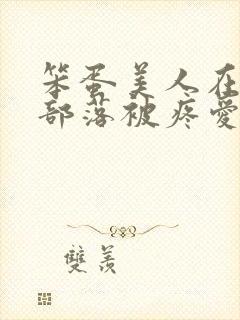 笨蛋美人在
部落被疼愛
雙羨